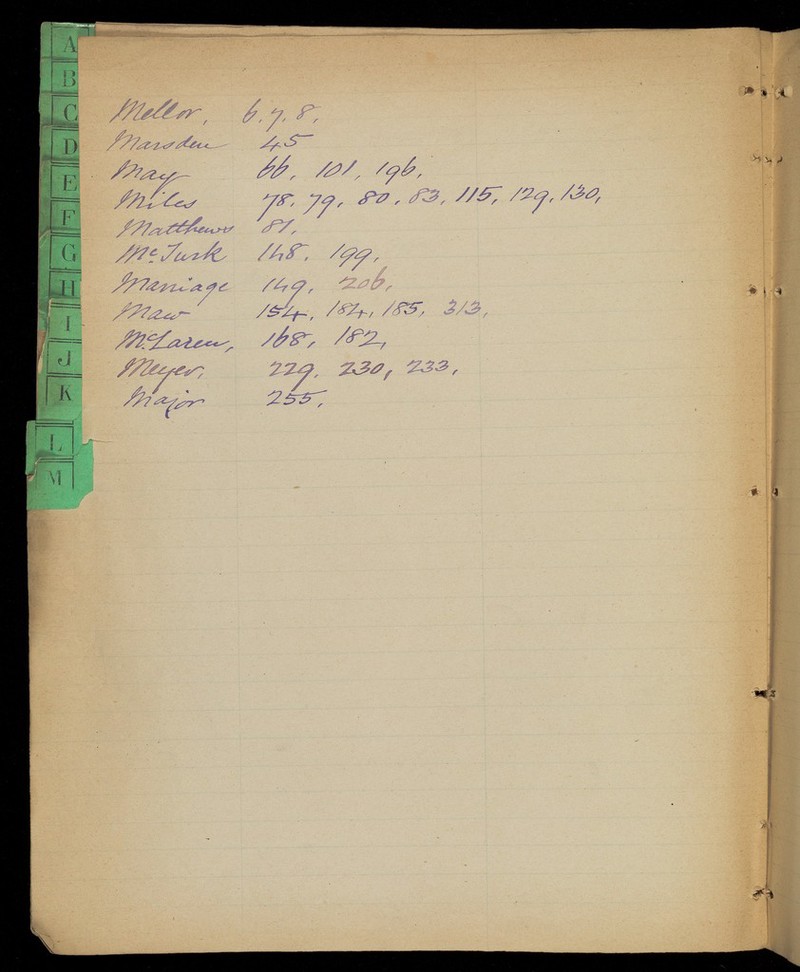 A
B
C
D
E
F
G
H
I
J
K
L
M
Mellor, 6. 7. 8,
Marsden 45
May 66, 101, 196,
Miles 78, 79, 80, 83, 115, 129, 130,
Matthews 87,
McTurk 148, 199,
Marriage 149, 206,
Maw 154, 184, 185, 313,
McLaren, 168, 182,
Meyer, 229, 230, 233,
Major 255,